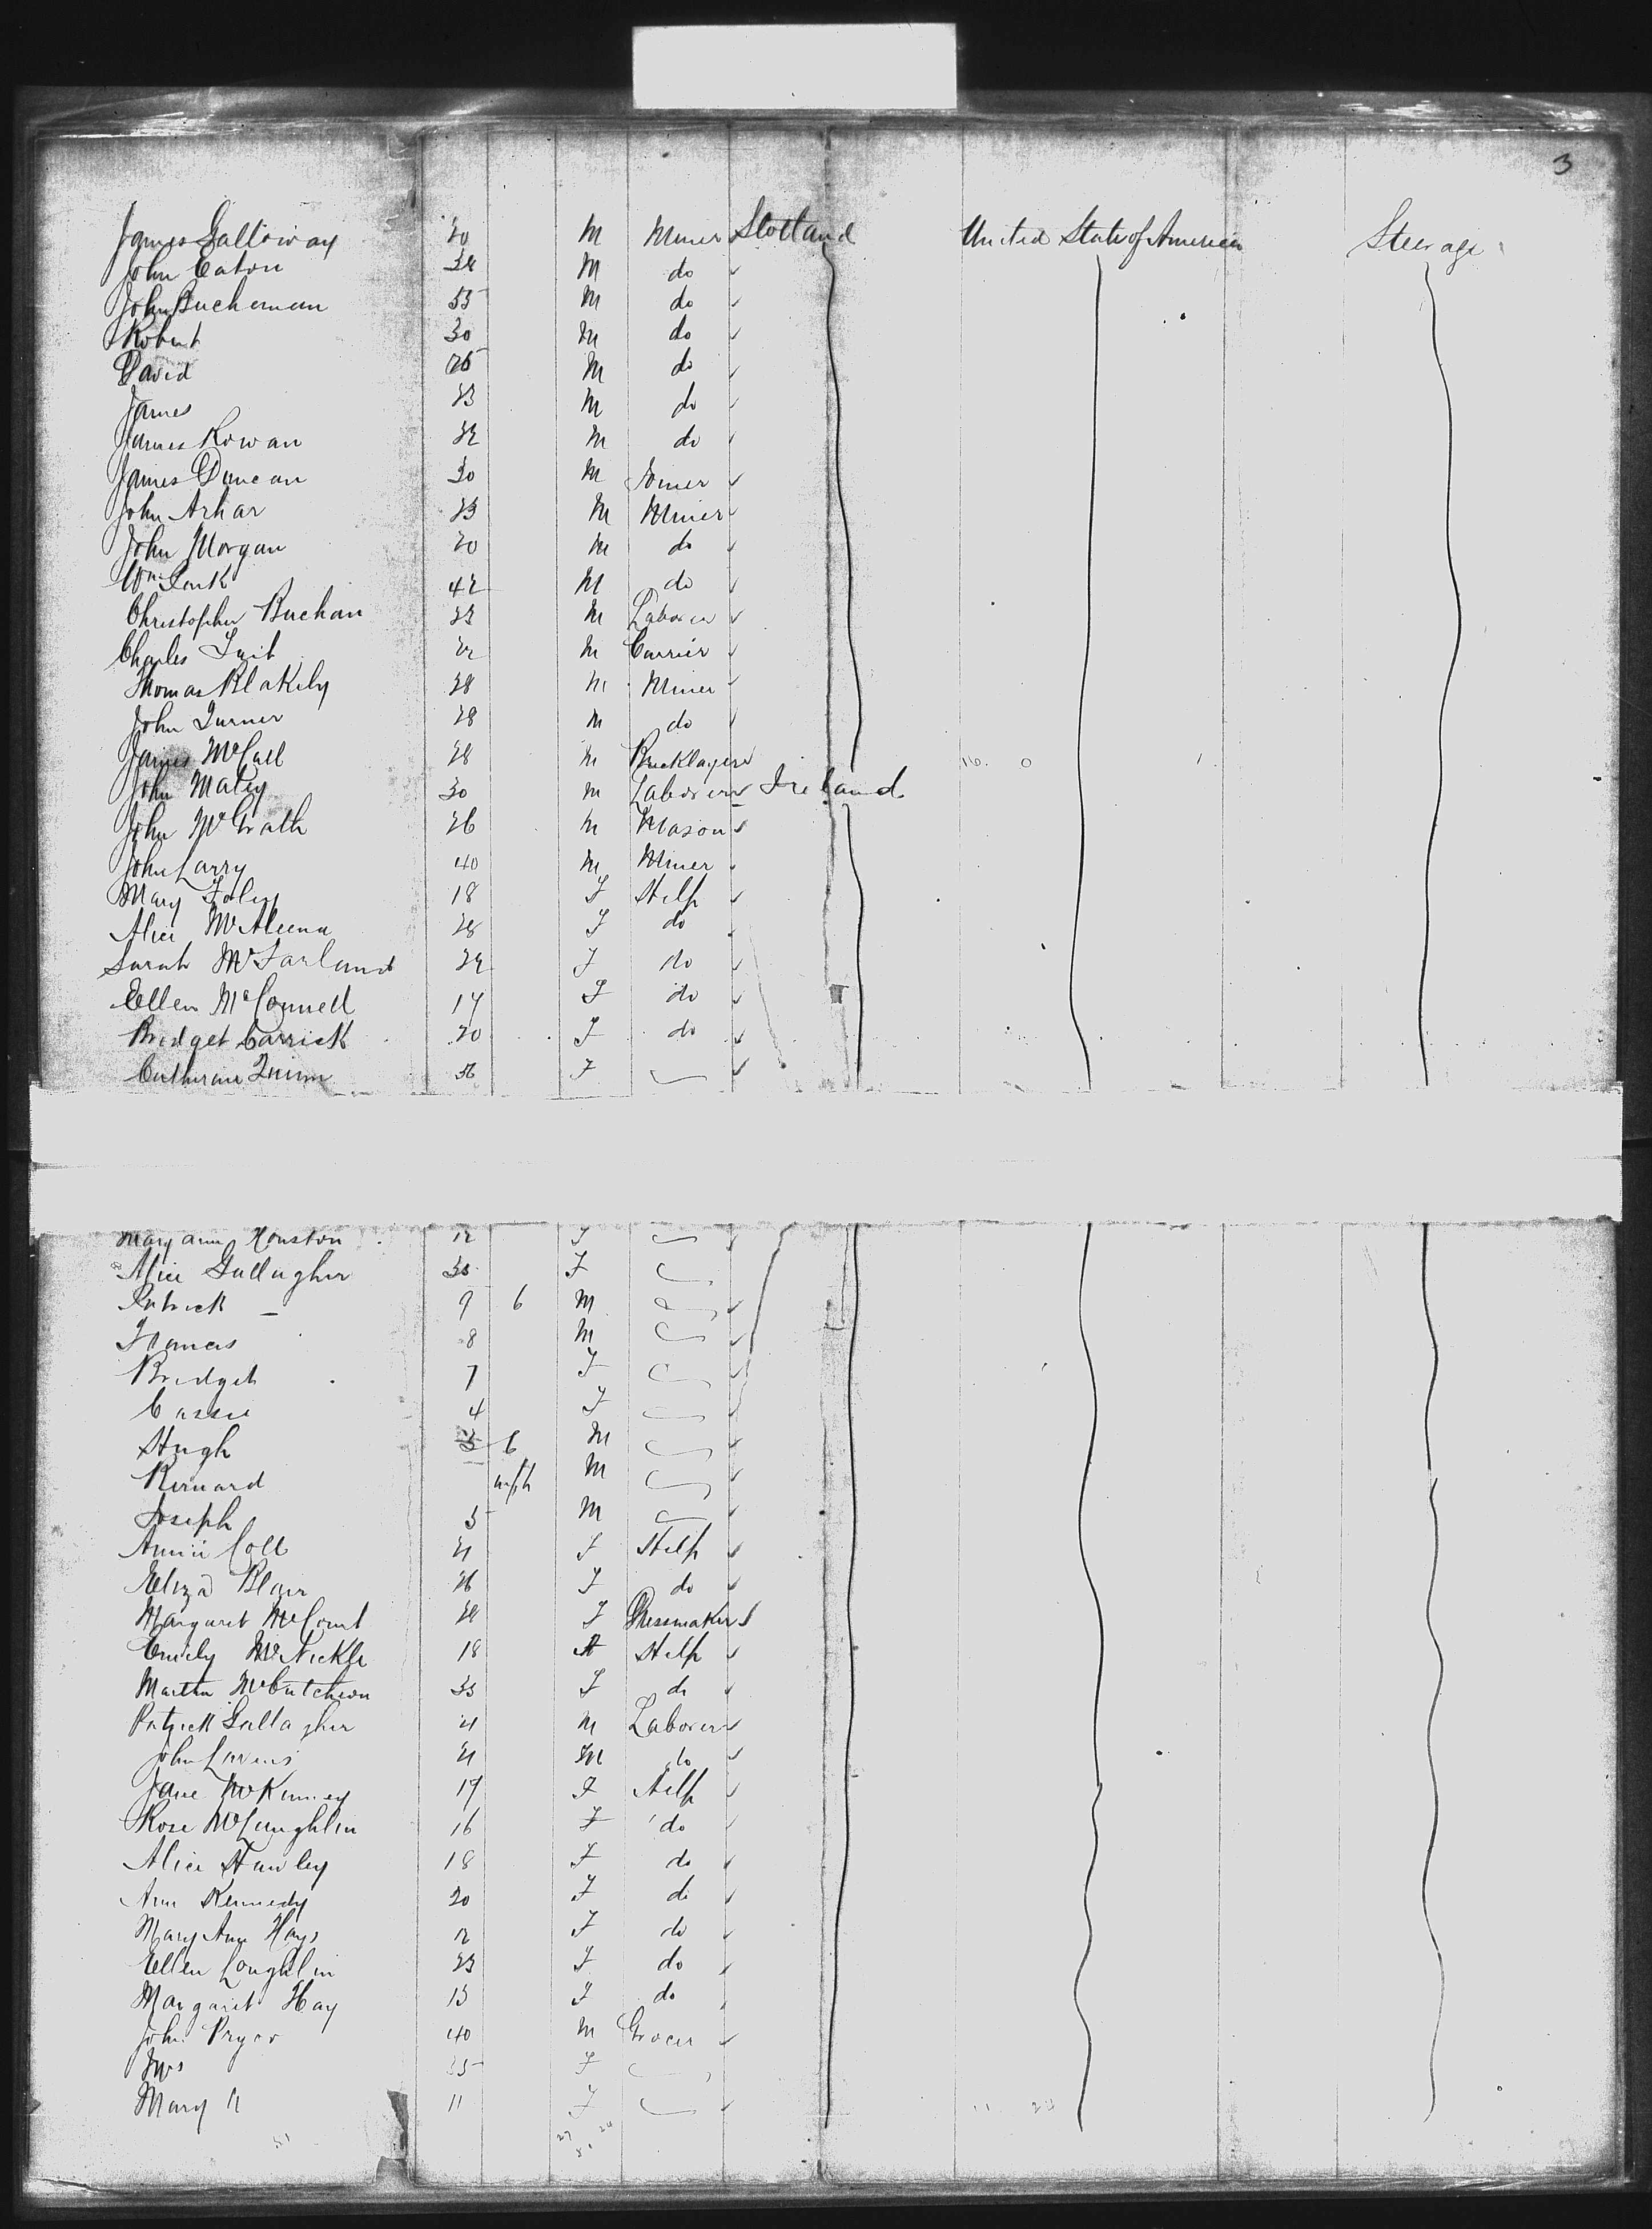 3
James Galloway 20 M Miner Scotland United State of America Steerage
John Eaton M do
John Buchanan 35 M do
Robert 30 M do
David 26 M do
James 23 M do
James Rowan 22 M do
James Duncan 30 M Joiner
John Arhar 23 M Miner
John Morgan 20 M do
Wm 42 M do
Christopher Buchan 23 M Laborer
Charles Tait 22 M Currier
Thomas Blakely 28 M Miner
John Turner 28 M do
James McCall 28 M Bricklayer
John Maley 30 M Laborer Ireland
John McGrath 26 M Mason
John Carry 40 M Miner
Mary Foley 18 F Help
Alice McAleena 28 F do
Sarah McFarland 22 F do
Ellen McConnell 17 F do
Bridget Carrick 20 F do
Catherine Quinn 56 F
Mary ann Houston 12 F
Alice Gallagher 30 F
Patrick 9 6 M
Francis 8 M
Bridget 7 F
Cassie 4 F
Hugh 3 6 M
Bernard inft M
Joseph 5 M
Annie Coll 21 F Help
Eliza Blair 26 F do
Margaret McCourt 22 F Dressmaker
Emily McNickle 18 F Help
Martha McCutcheon 33 F do
Patrick Gallagher 21 M Laborer
John 21 M do
Jane McKinney 17 F Help
Rose McLaughlin 16 F do
Alice Hawley 18 F do
Ann Kennedy 20 F do
Mary Ann Hays 12 F do
Ellen Loughlin 23 F do
Margaret Hay 13 F do
John Pryor 40 M Grocer
Mrs 35 F
Mary 11 F